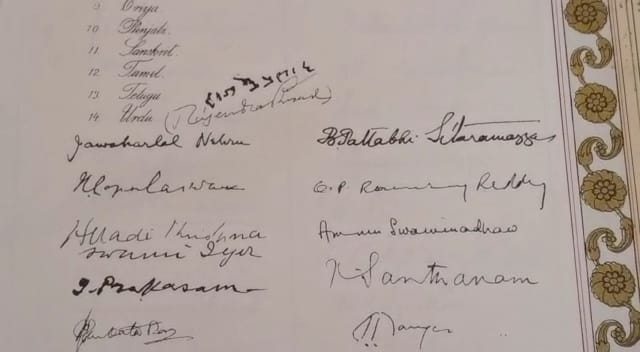 9 Oriya.
10 Punjabi.
11 Sanskrit.
12 Tamil.
13 Telugu.
14 Urdu.
राजेन्द्र प्रसाद
(Rajendra Prasad)
Jawaharlal Nehru B. Pattabhi Sitaramayya
N. Gopalaswami O. P. Ramaswamy Reddy
Alladi Krishna
swami Iyer
Ammu Swaminadhan
T. Prakasam K. Santhanam